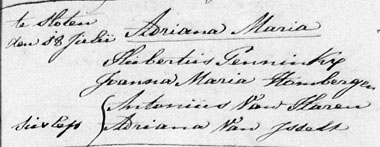 te Sloten
den 18 Julii Adriana Maria
Hubertus Penninkx
Joanna Maria Hombergen
Antonius Van Haren
Susc Adriana Van Isselt